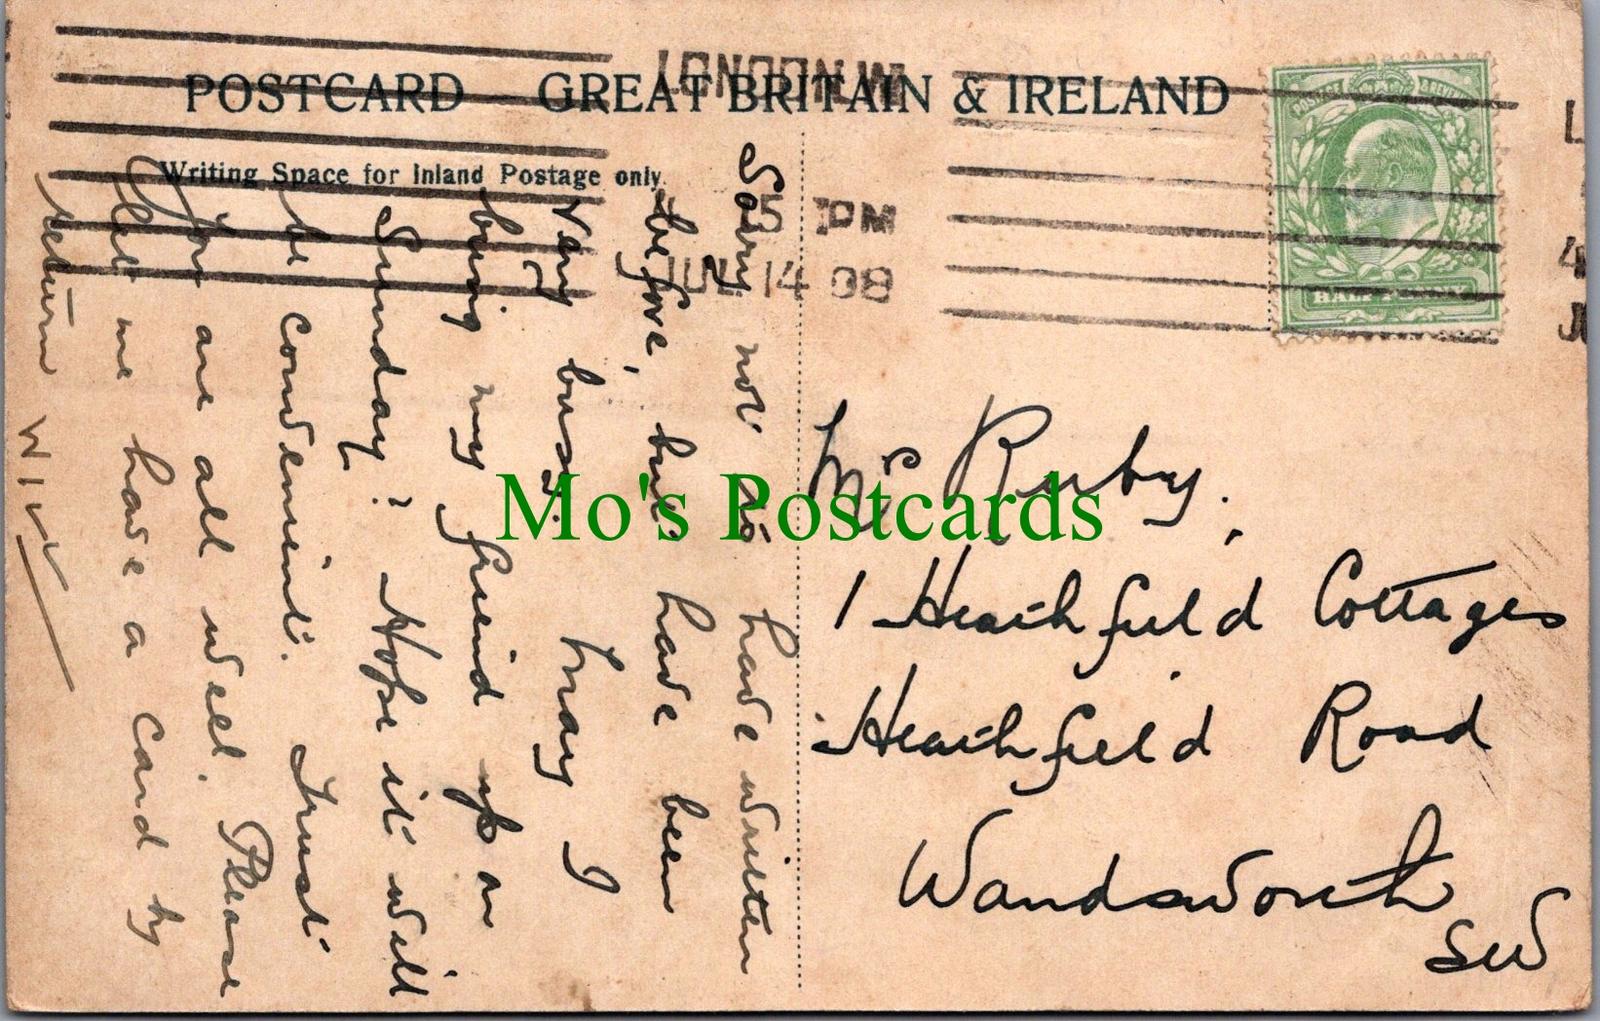 POSTCARD - GREAT BRITAIN & IRELAND
Writing Space for Inland Postage only.
LONDON.W
5 PM
14 08
POSTAGE REVENUE
HALF PENNY
Sorry not to have written
before, but have been
very busy. May I
bring my friend up on
Sunday? Hope it will
be convenient. Trust
you are all well. Please
let me have a card by
return
Will
Mo's Postcards
Ruby.
1 Heathfield Cottages
Heathfield Road
Wandsworth
SW